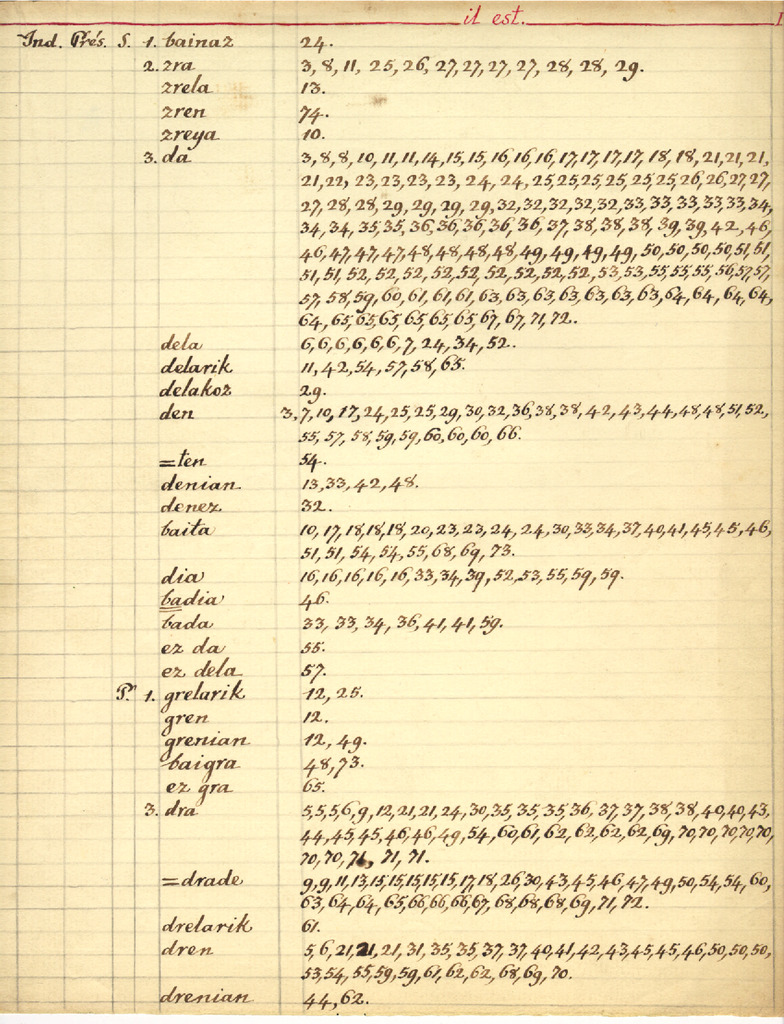 il est.
Ind. Prés. S. 1. bainaz 24.
2. zra 3, 8, 11, 25, 26, 27, 27, 27, 27, 28, 28, 29.
zrela 13.
zren 74.
zreya 10.
3. da 3, 8, 8, 10, 11, 11, 14, 15, 15, 16, 16, 16, 17, 17, 17, 17, 18, 18, 21, 21, 21,
21, 22, 23, 23, 23, 23, 24, 24, 25, 25, 25, 25, 25, 25, 26, 26, 27, 27,
27, 28, 28, 29, 29, 29, 29, 32, 32, 32, 32, 32, 33, 33, 33, 33, 33, 34,
34, 34, 35, 35, 36, 36, 36, 36, 36, 36, 37, 38, 38, 38, 39, 39, 42, 46,
46, 47, 47, 47, 48, 48, 48, 48, 49, 49, 49, 49, 50, 50, 50, 50, 51, 51,
51, 51, 52, 52, 52, 52, 52, 52, 52, 52, 52, 53, 53, 55, 55, 55, 56, 57, 57,
57, 58, 59, 60, 61, 61, 61, 63, 63, 63, 63, 63, 63, 63, 64, 64, 64, 64,
64, 65, 65, 65, 65, 65, 65, 67, 67, 71, 72.
dela 6, 6, 6, 6, 6, 6, 7, 24, 34, 52.
delarik 11, 42, 54, 57, 58, 65.
delakoz 29.
den 3, 7, 10, 17, 24, 25, 25, 29, 30, 32, 36, 38, 38, 42, 43, 44, 48, 48, 51, 52,
55, 57, 58, 59, 59, 60, 60, 60, 66.
=ten 54.
denian 13, 33, 42, 48.
denez 32.
baita 10, 17, 18, 18, 18, 20, 23, 23, 24, 24, 30, 33, 34, 37, 40, 41, 45, 45, 46,
51, 51, 54, 54, 55, 68, 69, 73.
dia 16, 16, 16, 16, 16, 33, 34, 39, 52, 53, 55, 59, 59.
badia 46.
bada 33, 33, 34, 36, 41, 41, 59.
ez da 55.
ez dela 57.
P. 1. grelarik 12, 25.
gren 12.
grenian 12, 49.
baigra 48, 73.
ez gra 65.
3. dra 5, 5, 5, 6, 9, 12, 21, 21, 24, 30, 35, 35, 35, 36, 37, 37, 38, 38, 40, 40, 43,
44, 45, 45, 46, 46, 49, 54, 60, 61, 62, 62, 62, 62, 69, 70, 70, 70, 70, 70,
70, 70, 71, 71, 71.
=drade 9, 9, 11, 13, 15, 15, 15, 15, 15, 17, 18, 26, 30, 43, 45, 46, 47, 49, 50, 54, 54, 60,
63, 64, 64, 65, 66, 66, 66, 67, 68, 68, 68, 69, 71, 72.
drelarik 61.
dren 5, 6, 21, 21, 21, 31, 35, 35, 37, 37, 40, 41, 42, 43, 45, 45, 46, 50, 50, 50,
53, 54, 55, 59, 59, 61, 62, 62, 68, 69, 70.
drenian 44, 62.